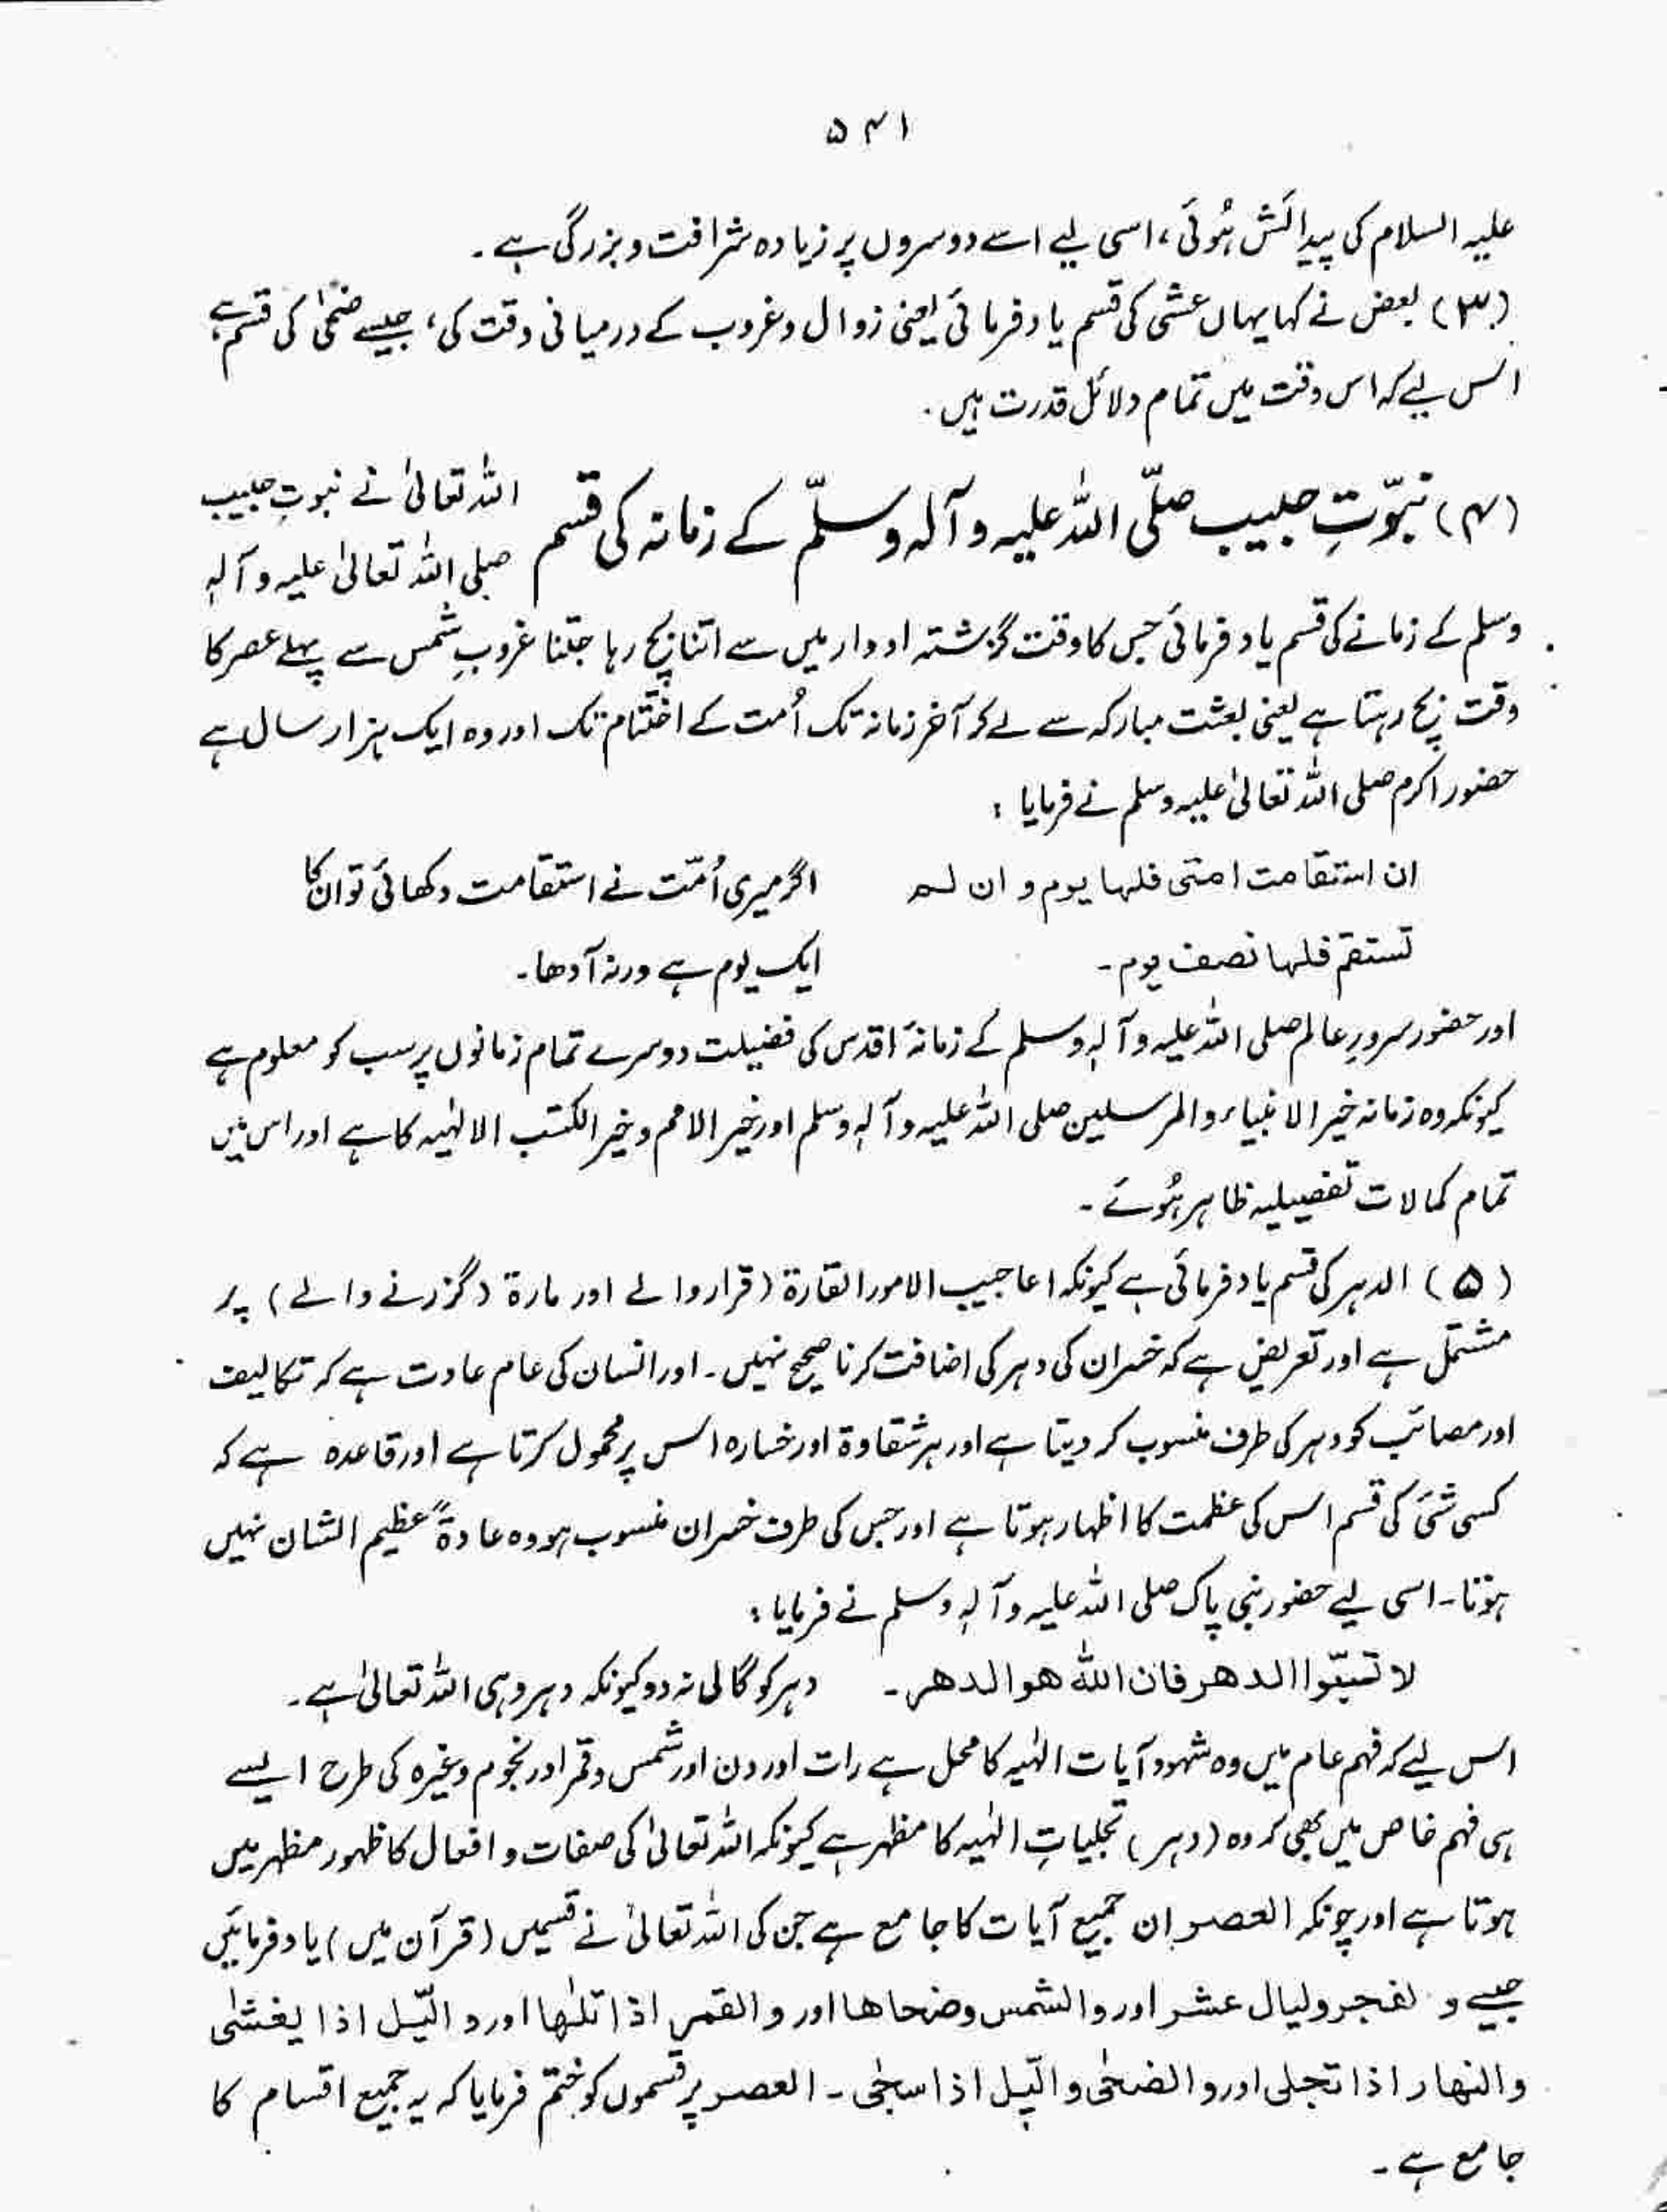 ۵۴۱
علیہ السلام کی پیدائش ہُوئی، اسی لیے اسے دوسروں پر زیادہ شرافت و بزرگی ہے۔
(۳) بعض نے کہا یہاں عشی کی قسم یاد فرمائی یعنی زوال و غروب کے درمیانی وقت کی، جیسے ضحٰی کی قسم ہے
اس لیے کہ اس وقت میں تمام دلائل قدرت ہیں۔
(۴) نبوّتِ حبیب صلّی اللہ علیہ و آلہ وسلّم کے زمانہ کی قسم اللہ تعالیٰ نے نبوتِ حبیب
صلی اللہ تعالیٰ علیہ و آلہٖ
وسلم کے زمانے کی قسم یاد فرمائی جس کا وقت گزشتہ ادوار میں سے اتنا بچ رہا جتنا غروبِ شمس سے پہلے عصر کا
وقت بچ رہتا ہے یعنی بعثت مبارکہ سے لے کر آخر زمانہ تک اُمت کے اختتام تک اور وہ ایک ہزار سال ہے
حضور اکرم صلی اللہ تعالیٰ علیہ وسلم نے فرمایا :
ان استقامت امتی فلہا یوم و ان لم اگر میری اُمّت نے استقامت دکھائی تو ان کا
تستقم فلہا نصف یوم۔ ایک یوم ہے ورنہ آدھا۔
اور حضور سرورِ عالم صلی اللہ علیہ و آلہٖ وسلم کے زمانۂ اقدس کی فضیلت دوسرے تمام زمانوں پر سب کو معلوم ہے
کیونکہ وہ زمانہ خیر الانبیاء والمرسلین صلی اللہ علیہ و آلہٖ وسلم اور خیر الامم و خیر الکتب الالٰہیہ کا ہے اور اس میں
تمام کمالات تفصیلیہ ظاہر ہُوئے۔
(۵) الدہر کی قسم یاد فرمائی ہے کیونکہ اعاجیب الامور القارۃ (قرار والے اور مارۃ (گزرنے والے) پر
مشتمل ہے اور تعریض ہے کہ خسران کی دہر کی اضافت کرنا صحیح نہیں۔ اور انسان کی عام عادت ہے کہ تکالیف
اور مصائب کو دہر کی طرف منسوب کر دیتا ہے اور ہر شقاوۃ اور خسارہ اس پر محمول کرتا ہے اور قاعدہ ہے کہ
کسی شئ کی قسم اس کی عظمت کا اظہار ہوتا ہے اور جس کی طرف خسران منسوب ہو وہ عادۃً عظیم الشان نہیں
ہوتا۔ اسی لیے حضور نبی پاک صلی اللہ علیہ و آلہٖ وسلم نے فرمایا :
لا تسبّوا الدھر فان اللہ ھو الدھر۔ دہر کو گالی نہ دو کیونکہ دہر وہی اللہ تعالیٰ ہے۔
اس لیے کہ فہم عام میں وہ شہود آیات الٰہیہ کا محل ہے رات اور دن اور شمس و قمر اور نجوم وغیرہ کی طرح ایسے
ہی فہم خاص میں بھی کہ وہ (دہر) تجلیاتِ الٰہیہ کا مظہر ہے کیونکہ اللہ تعالیٰ کی صفات و افعال کا ظہور مظہر میں
ہوتا ہے اور چونکہ العصر ان جمیع آیات کا جامع ہے جن کی اللہ تعالیٰ نے قسمیں (قرآن میں) یاد فرمائیں
جیسے و لفجر ولیال عشر اور والشمس وضحاھا اور والقمر اذا تلٰھا اور والّیل اذا یغشٰی
والنھار اذا تجلی اور والضحٰی والّیل اذا سجٰی۔ العصر پر قسموں کو ختم فرمایا کہ یہ جمیع اقسام کا
جامع ہے۔